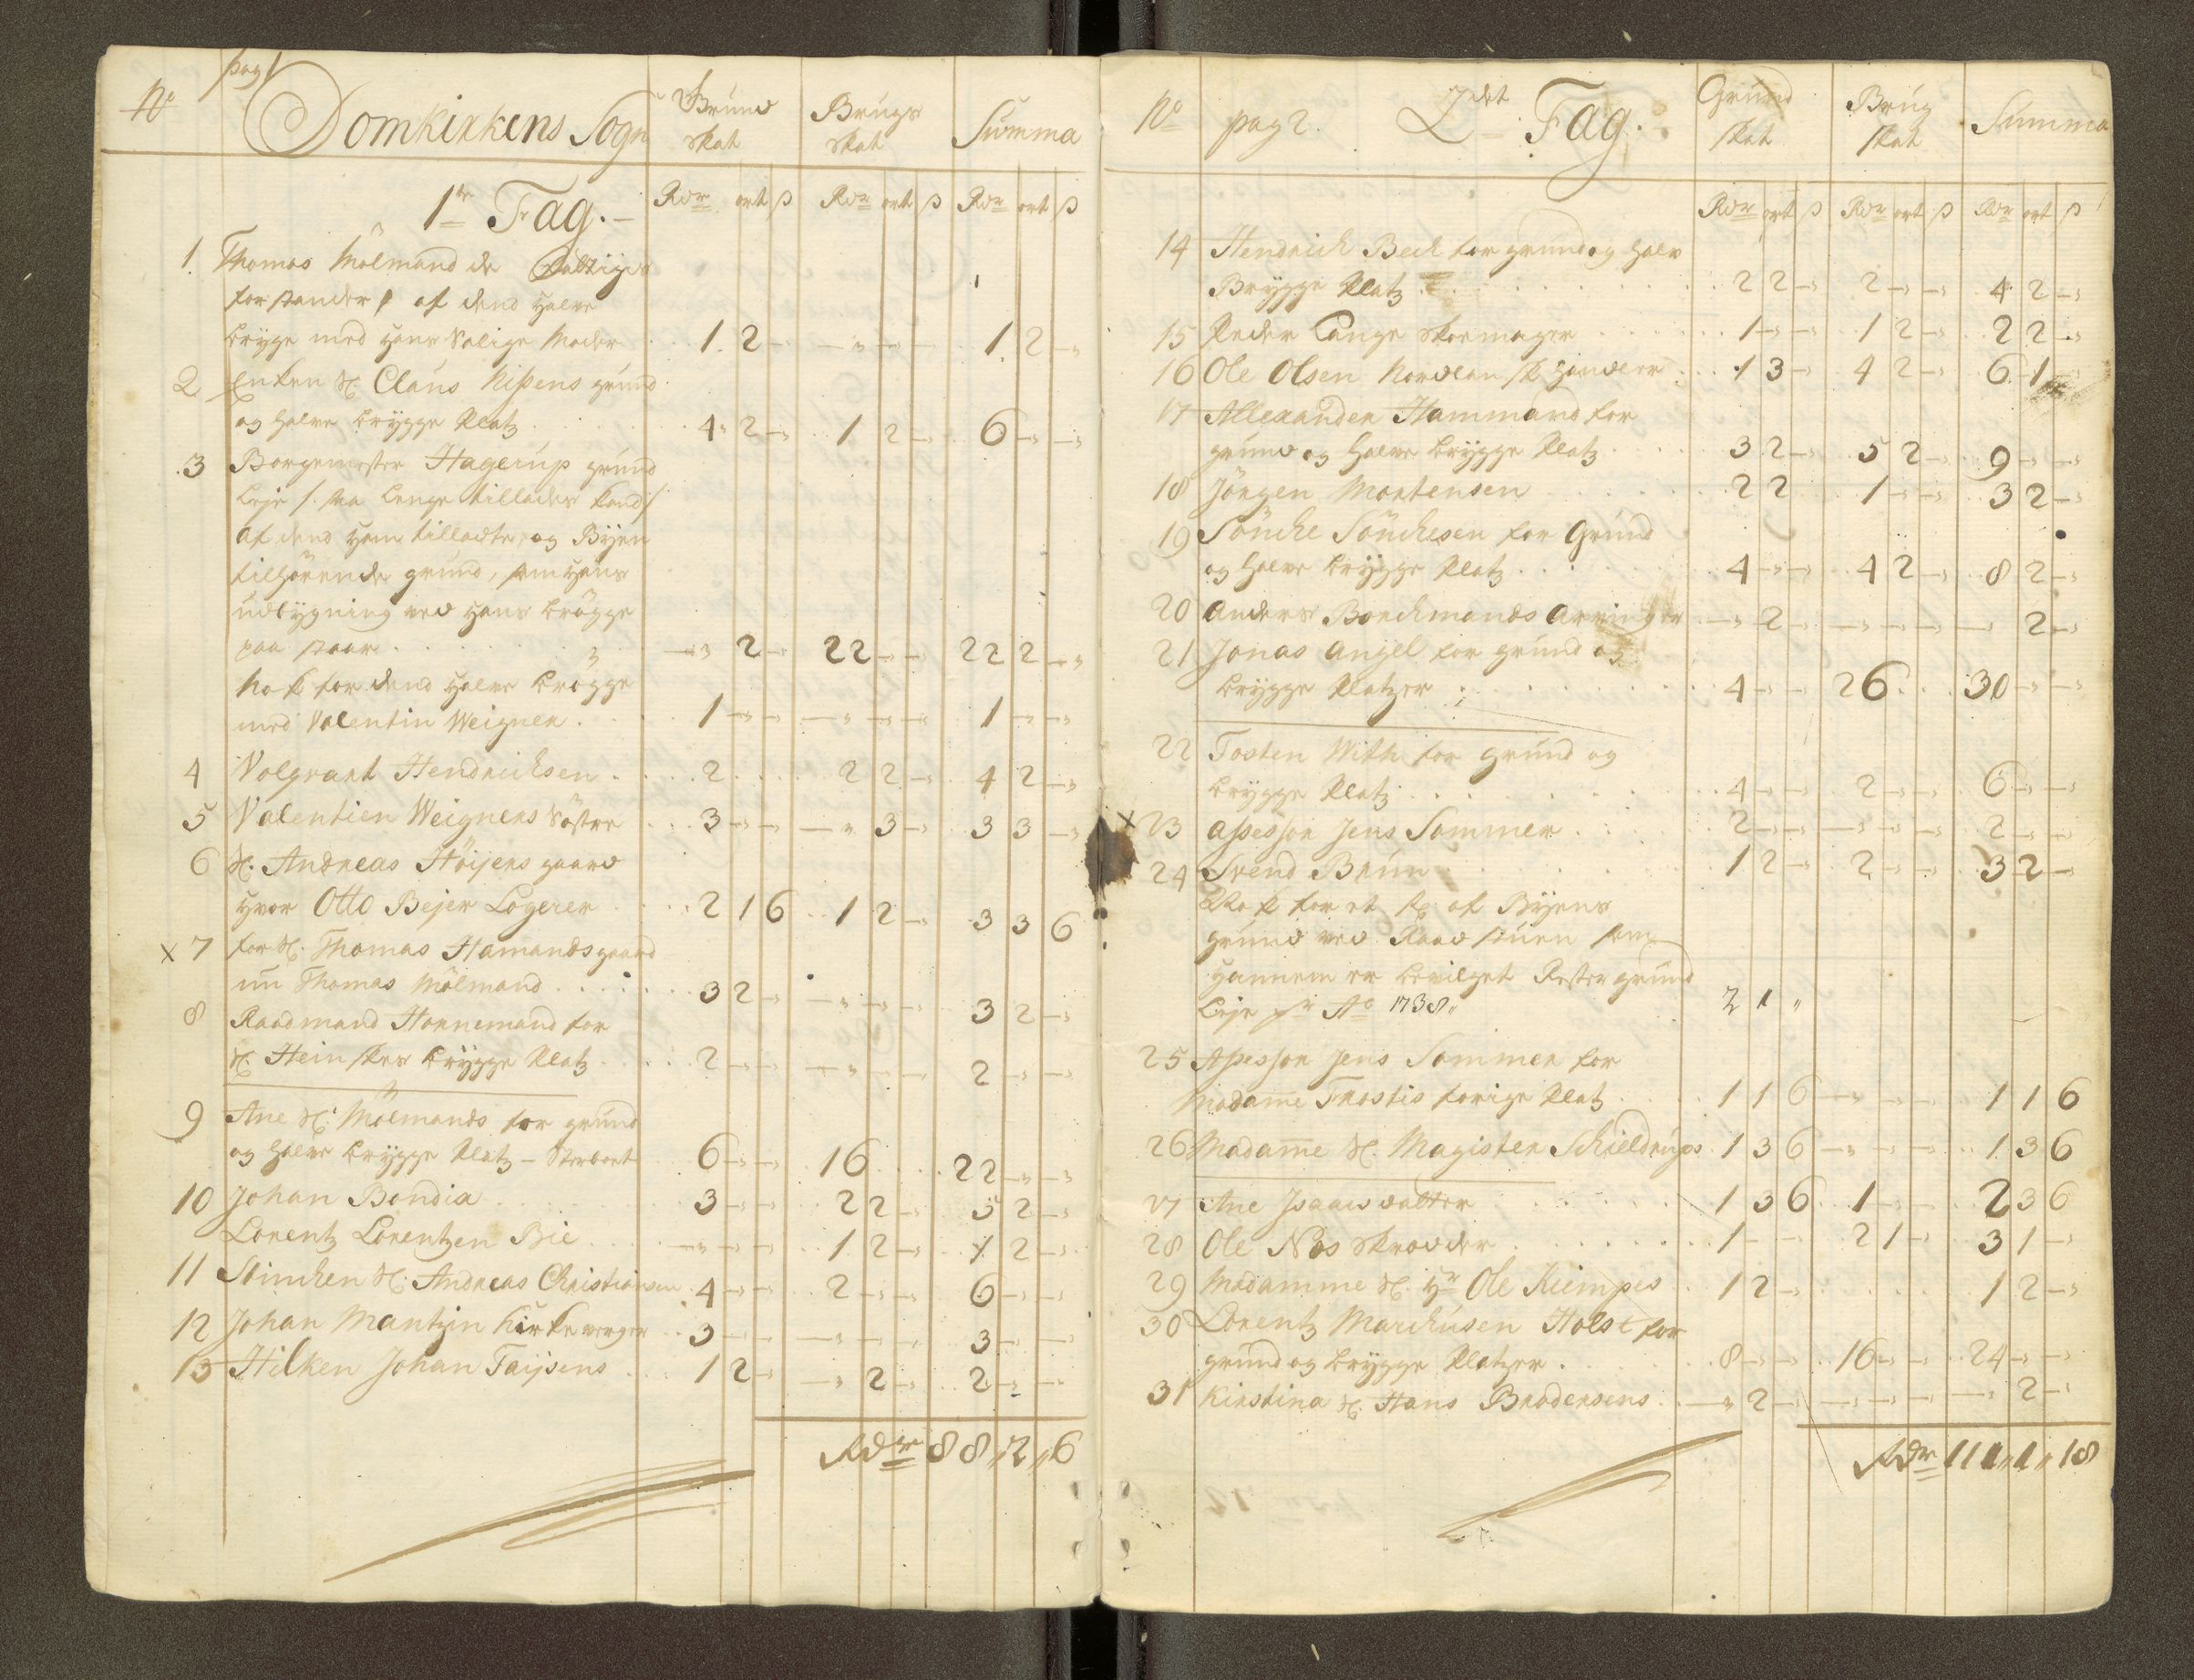 pag 1
No Domkirkens Sogn Grund skat Brugs skat Summa
1te Fag. Rdr ort ß Rdr ort ß Rdr ort ß
1. Thomas Mölmand de Fattiges
forstander / af dend halve
brygge med hans Salige Moder 1. 2 - - - - 1. 2 -
2 Enken Sl. Claus Nißens grund
og halve brygge Platz 4 2 - 1 2 - 6 - -
3 Borgemester Hagerup grund
leje / saa lenge tillades kand /
af dend ham tilladte, og Byen
tilhörende grund, som hans
udbygning ved hans brögge
paa staar - 2 - 22 - - 22 2 -
Nok for dend halve brögge
med Valentin Weigner 1 - - - - - 1 - -
4 Volgrant Hendrichsen 2 2 2 - 4 2 -
5 Valentien Weigners Söstre 3 - - - 3 - 3 3 -
6 Sl. Andreas Höijers gaard
hvor Otto Bejer Logerer 2 1 6 1 2 - 3 3 6
x 7 for Sl. Thomas Hamands gaard
nu Thomas Mölmand 3 2 - - - - 3 2 -
8 Raadmand Hornemand for
Sl. Hein skes brygge Platz 2 - - - - - 2 - -
9 Ane Sl. Mölmands for grund
og halve brygge Platz - 6 - - 16 22 - -
10 Johan Bondia 3 - - 2 2 - 5 2 -
Lorentz Lorentzen Bie - - - 1 2 - 1 2 -
11 Stinchen Sl. Andreas Christiansen 4 - - 2 - - 6 - -
12 Johan Mantzin Kirkeverger 3 - - - - - 3 - -
13 Hilken Johan Taijsens 1 2 - - 2 - 2 - -
Rdr 88 „ 2 „ 6
No pag 2. 2det Fag. Grund skat Brug skat Summa
Rdr ort ß Rdr ort ß Rdr ort ß
14 Hendrich Beck for grund og halv
Brygge Platz 2 2 - 2 - - 4 2 -
15 Peder Lange Skoemager 1 - - 1 2 - 2 2 -
16 Ole Olsen Nordlan sk handler 1 3 - 4 2 - 6 1 -
17 Allexander Hammand for
grund og halve brygge Platz 3 2 - 5 2 - 9 - -
18 Jörgen Mortensen 2 2 1 - - 3 2 -
19 Sönche Sönchesen for Grund
og halve brygge Platz 4 - - 4 2 - 8 2 -
20 Anders Borchmands Arvinger - 2 - - - - - 2 -
21 Jonas Angel for grund og
brygge Platzer 4 - - 26 30 - -
22 Tosten With for grund og
brygge Platz 4 - - 2 - - 6 - -
x 23 Aßeßor Jens Sommer 2 - - - - - 2 - -
24 Svend Brun 1 2 - 2 - - 3 2 -
Nok for et st. af Byens
grund ved Raad stuen som
hannem er bevilget Rester grund
leje Ao 1738 „ 2 1 „
25 Aßeßor Jens Sommer for
Madame Frostis forige Platz 1 1 6 - - - 1 1 6
26 Madame Sl. Magister Schieldrups 1 3 6 - - - 1 3 6
27 Ane Isaacsdatter 1 3 6 1 - - 2 3 6
28 Ole Nös Skrædder 1 - - 2 1 - 3 1 -
29 Madamme Sl. Hr Ole Kiempes 1 2 - 1 2 -
30 Lorentz Marchusen Holst for
grund og brygge Platzer 8 - - 16 - - 24 - -
31 Kirstina Sl. Hans Brodersens - 2 - - - - - 2 -
Rdr 111 „ 1 „ 18